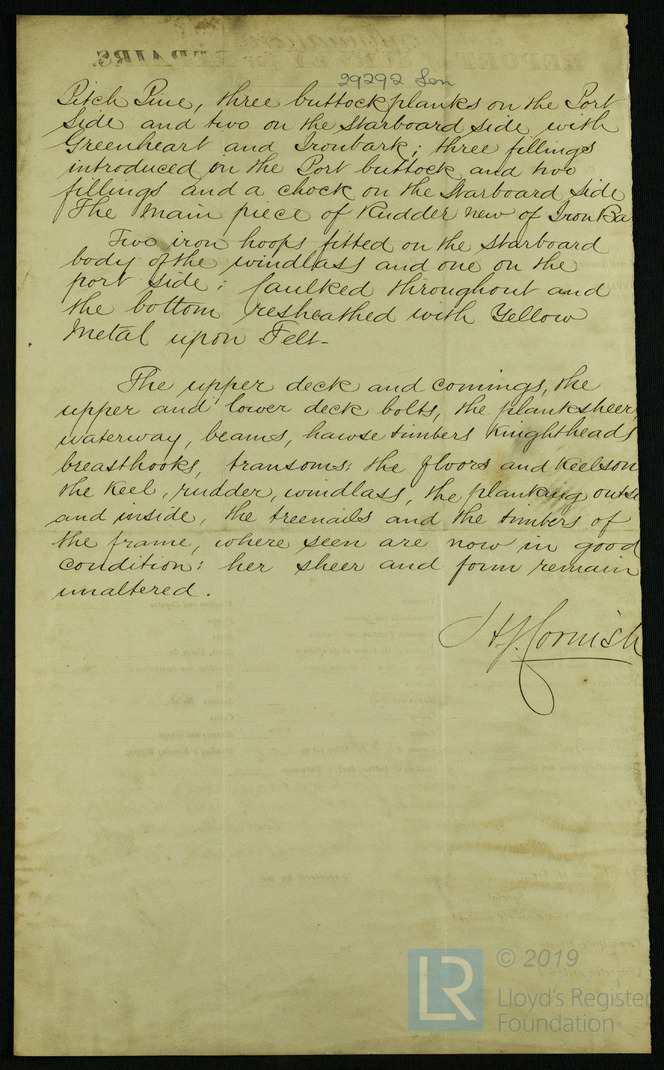 29292 Lon
Pitch Pine, three buttock planks on the Port
Side and two on the Starboard side with
Greenheart and Ironbark; three fillings
introduced in the Port buttock and two
fillings and a chock on the Starboard Side
The Main piece of Rudder new of Iron Ba
Two iron hoops fitted on the starboard
body of the windlass and one on the
port side; Caulked throughout and
the bottom resheathed with Yellow
Metal upon Felt-
The upper deck and comings, the
upper and lower deck bolts, the planksheer,
waterway, beams, hawse timbers Knightheads
breasthooks, transoms; the floors and Keelson
the Keel, rudder, windlass, the planking outsi
and inside, the treenails and the timbers of
the frame, where seen are now in good
condition; her sheer and form remain
unaltered.
H J Cornish
LR
© 2019
Lloyd's Register
Foundation